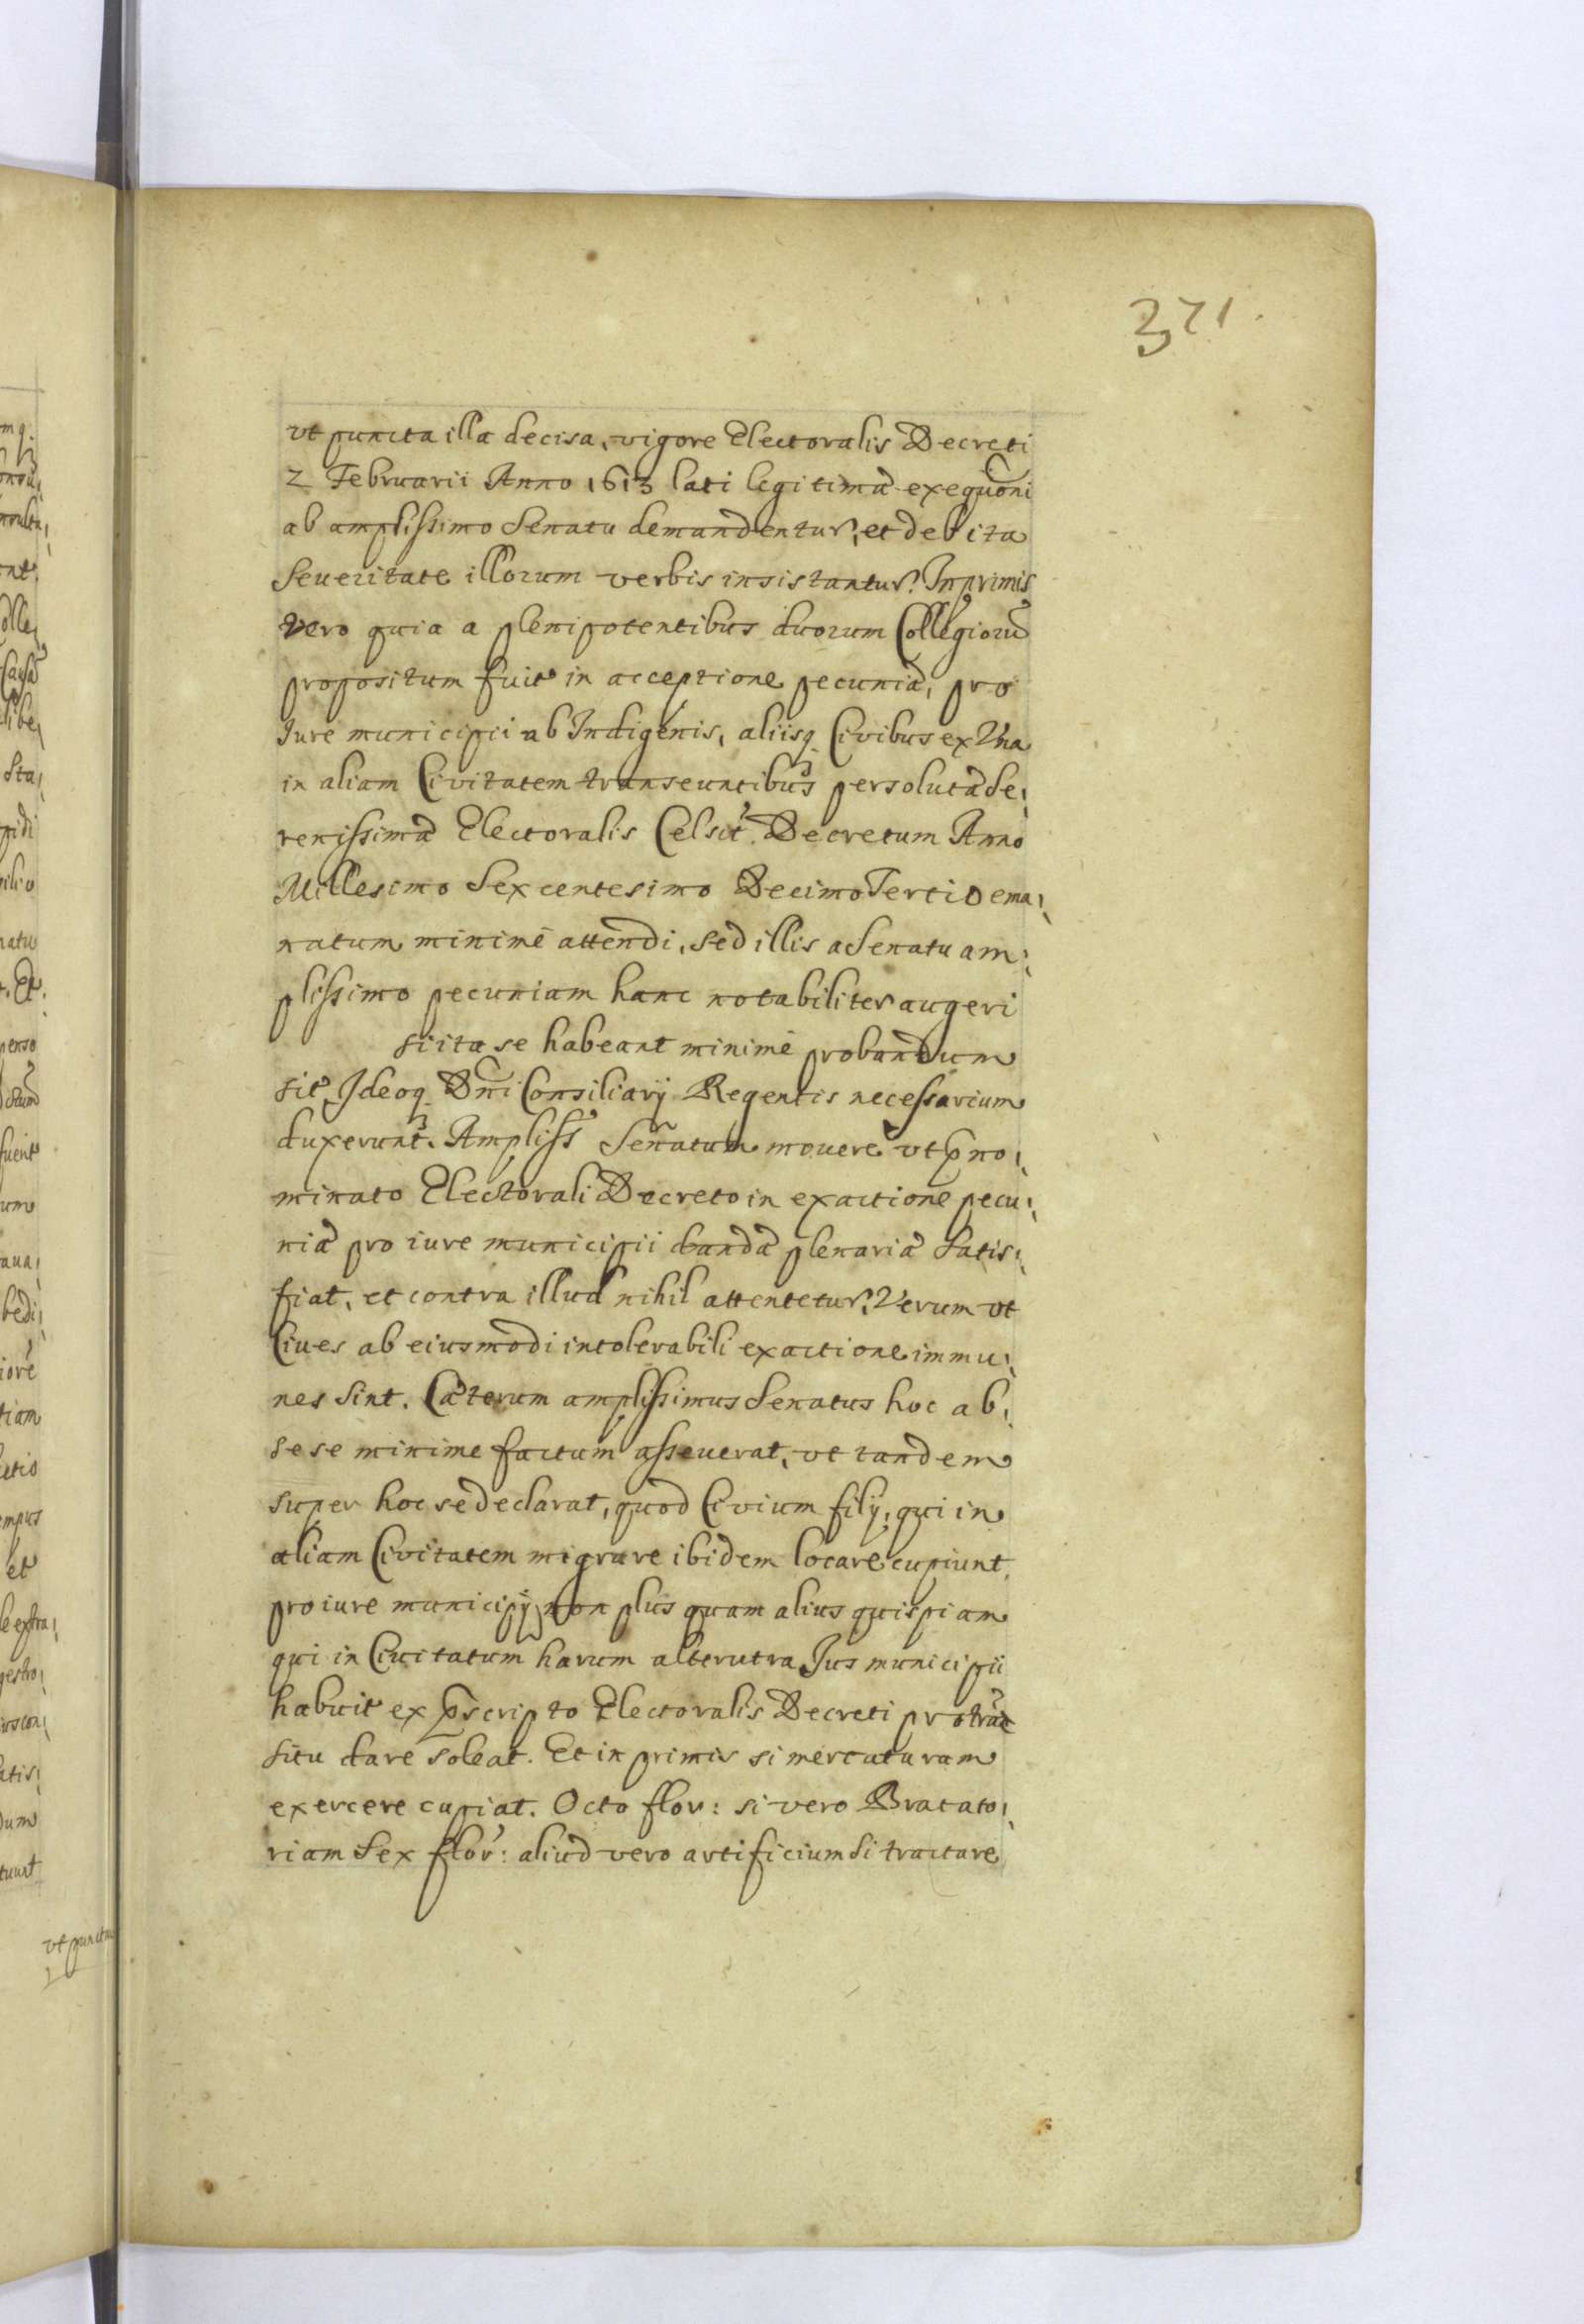 371.
vt puncta illa decisa, vigore Electoralis Decreti
2 Februarii Anno 1613 lati legitimæ exequõni
ab amplissimo Senatu demandentur, et debita
Seueritate illorum verbis insistantur. Inprimis
vero quia a plenipotentibus duorum Collegiorũ
propositum fuit in acceptione pecuniæ, pro
Jure municipii ab Indigenis, aliisq. Civibus ex Vna
in aliam Civitatem transeuntibus persolutæ Se,
renissimæ Electoralis Celsit. Decretum Anno
Millesimo Sexcentesimo Decimo Tertio ema,
natum minimè attendi, sed illis a Senatu am,
plissimo pecuniam hanc notabiliter augeri
si ita se habeant minimè probandum
sit, Ideoq. Dñi Consiliarij Regentis necessarium
duxerunt. Ampliss Senatum mouere vt p̃no,
minato Electorali Decreto in exactione pecu,
niæ pro iure municipii dandæ plenariæ Satis,
fiat, et contra illud nihil attentetur, Verum vt
Ciues ab eiusmodi intolerabili exactione immu,
nes sint. Cæterum amplissimus Senatus hoc ab,
sese minime factum asseuerat, vt tandem
super hoc se declarat, quod Civium filij, qui in
aliam Civitatem migrare ibidem locare cupiunt,
pro iure municipij non plus quam alius quispiam
qui in Ciuitatum harum alterutra Jus municipii
habuit ex p̃scripto Electoralis Decreti pro tran
situ dare soleat. Et in primis si mercaturam
exercere cupiat. Octo flor: si vero Bracato,
riam Sex flor: aliud vero artificium si tractare
vt puncta